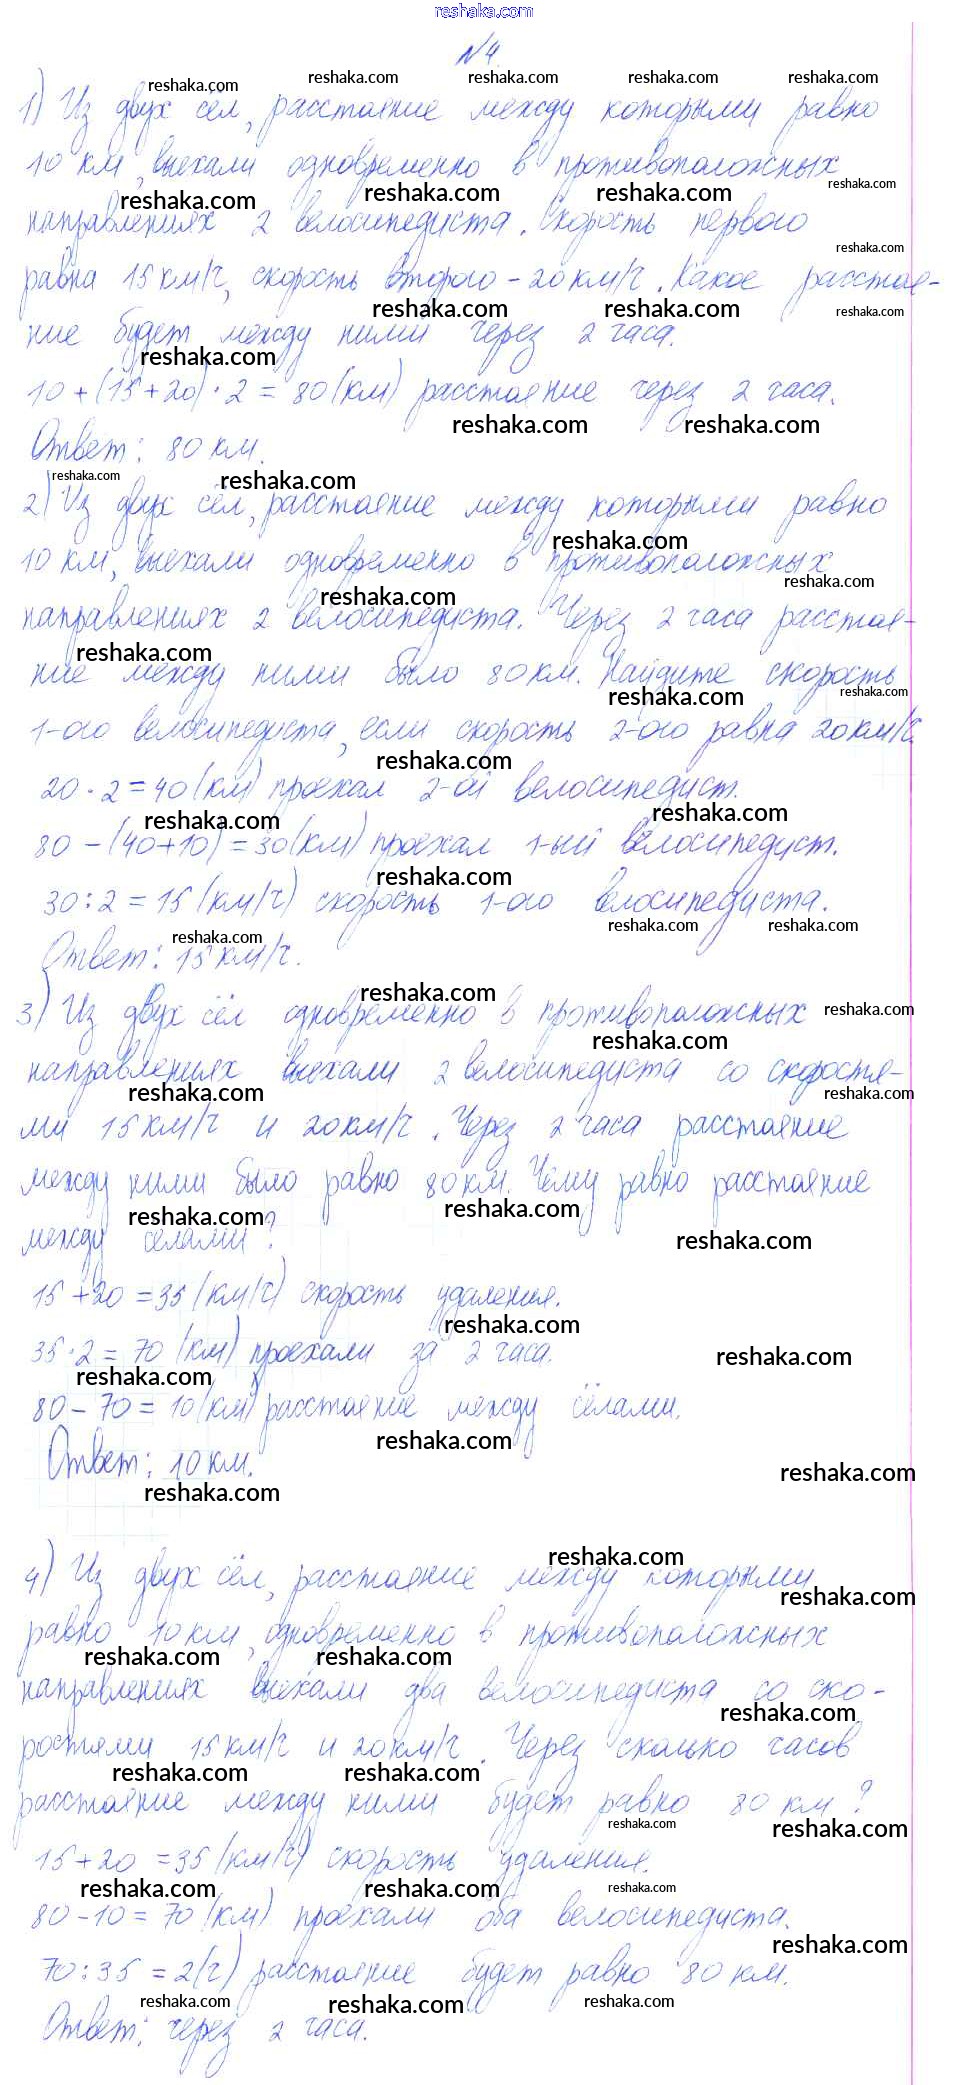 reshaka.com
№4.
1) Из двух сёл, расстояние между которыми равно
10 км, выехали одновременно в противоположных
направлениях 2 велосипедиста. Скорость первого
равна 15 км/ч, скорость второго - 20 км/ч. Какое расстоя-
ние будет между ними через 2 часа.
10 + (15 + 20) · 2 = 80 (км) расстояние через 2 часа.
Ответ: 80 км.
2) Из двух сёл, расстояние между которыми равно
10 км, выехали одновременно в противоположных
направлениях 2 велосипедиста. Через 2 часа расстоя-
ние между ними было 80 км. Найдите скорость
1-ого велосипедиста, если скорость 2-ого равна 20 км/ч.
20 · 2 = 40 (км) проехал 2-ой велосипедист.
80 - (40 + 10) = 30 (км) проехал 1-ый велосипедист.
30 : 2 = 15 (км/ч) скорость 1-ого велосипедиста.
Ответ: 15 км/ч.
3) Из двух сёл одновременно в противоположных
направлениях выехали 2 велосипедиста со скоростя-
ми 15 км/ч и 20 км/ч. Через 2 часа расстояние
между ними было равно 80 км. Чему равно расстояние
между сёлами?
15 + 20 = 35 (км/ч) скорость удаления.
35 · 2 = 70 (км) проехали за 2 часа.
80 - 70 = 10 (км) расстояние между сёлами.
Ответ: 10 км.
4) Из двух сёл, расстояние между которыми
равно 10 км, одновременно в противоположных
направлениях выехали два велосипедиста со ско-
ростями 15 км/ч и 20 км/ч. Через сколько часов
расстояние между ними будет равно 80 км?
15 + 20 = 35 (км/ч) скорость удаления.
80 - 10 = 70 (км) проехали оба велосипедиста.
70 : 35 = 2 (ч) расстояние будет равно 80 км.
Ответ: через 2 часа.